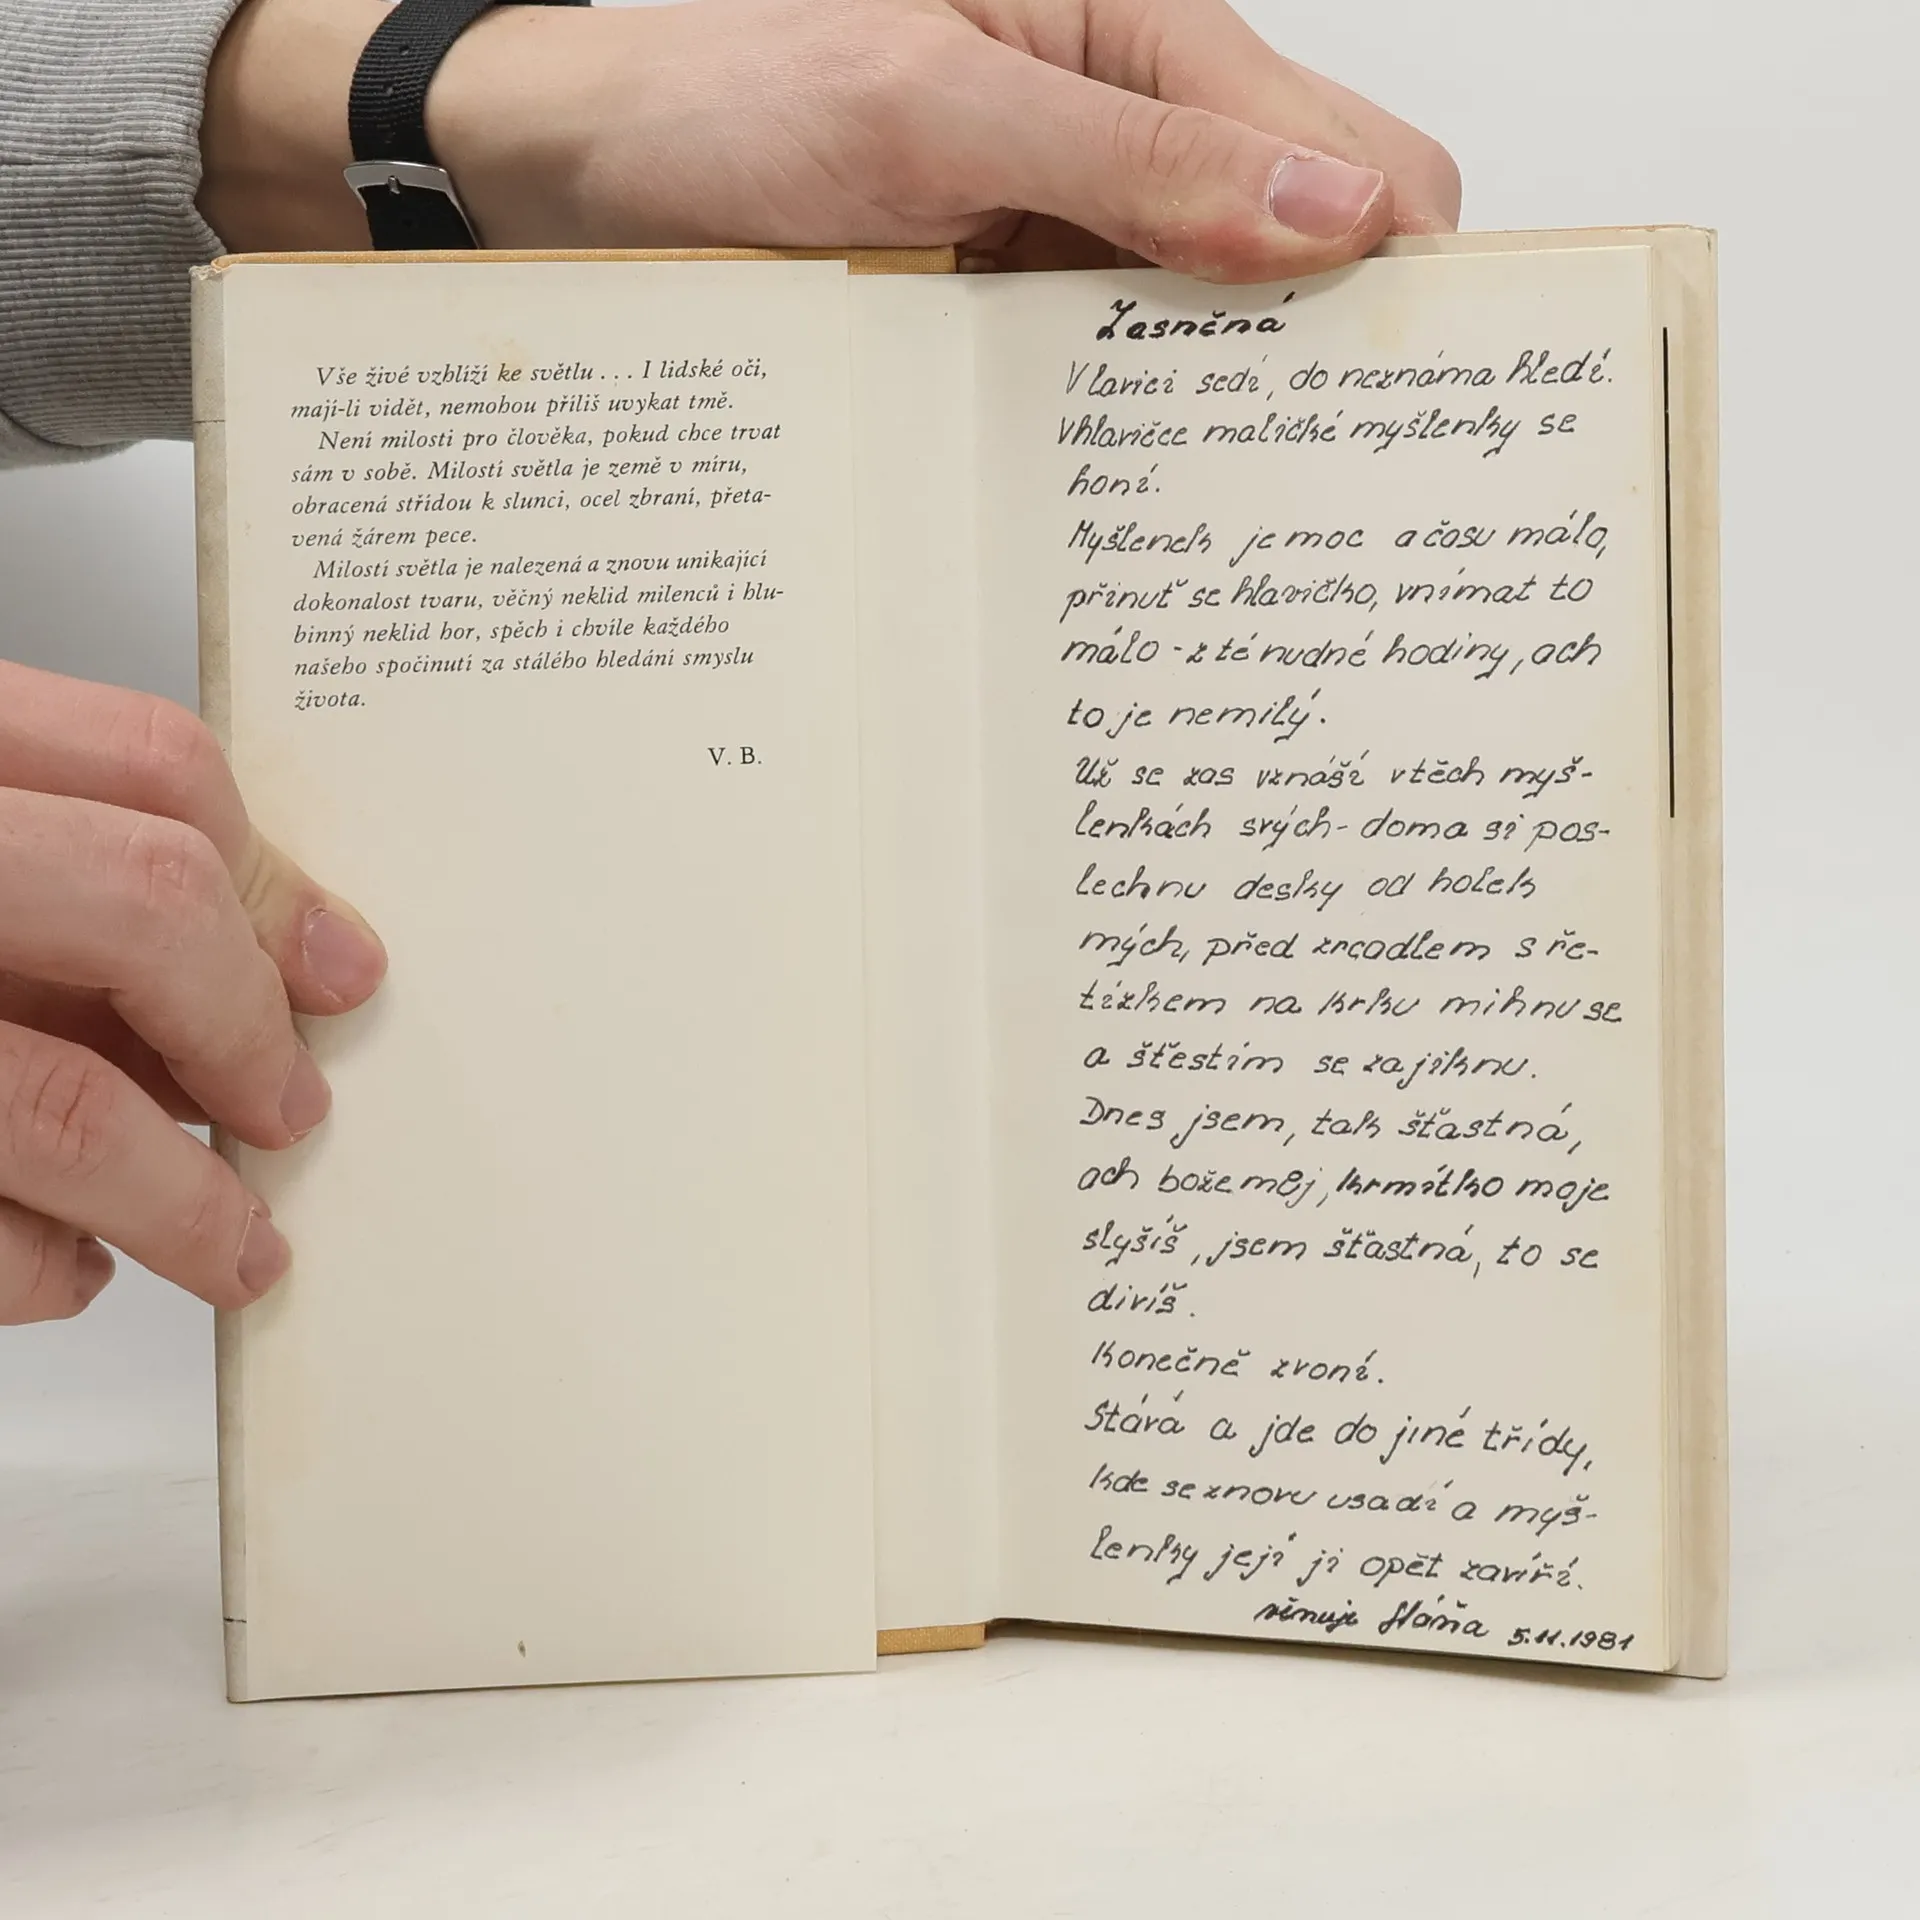 Vše živé vzhlíží ke světlu . . . I lidské oči,
mají-li vidět, nemohou příliš uvykat tmě.
Není milosti pro člověka, pokud chce trvat
sám v sobě. Milostí světla je země v míru,
obracená střídou k slunci, ocel zbraní, přeta-
vená žárem pece.
Milostí světla je nalezená a znovu unikající
dokonalost tvaru, věčný neklid milenců i hlu-
binný neklid hor, spěch i chvíle každého
našeho spočinutí za stálého hledání smyslu
života.
V. B.
Zasněná
V lavici sedí, do neznáma hledí.
V hlavičce maličké myšlenky se
honí.
Myšlenek je moc a času málo,
přinuť se hlavičko, vnímat to
málo - z té nudné hodiny, ach
to je nemilý.
Už se zas vznáší v těch myš-
lenkách svých - doma si pos-
lechnu desky od holek
mých, před zrcadlem s ře-
tízkem na krku mihnu se
a štěstím se zajiknu.
Dnes jsem, tak šťastná,
ach bože můj, krmítko moje
slyšíš, jsem šťastná, to se
divíš.
Konečně zvoní.
Stává a jde do jiné třídy,
kde se znovu usadí a myš-
lenky její ji opět zavíří.
věnuje Háňa 5.11.1981